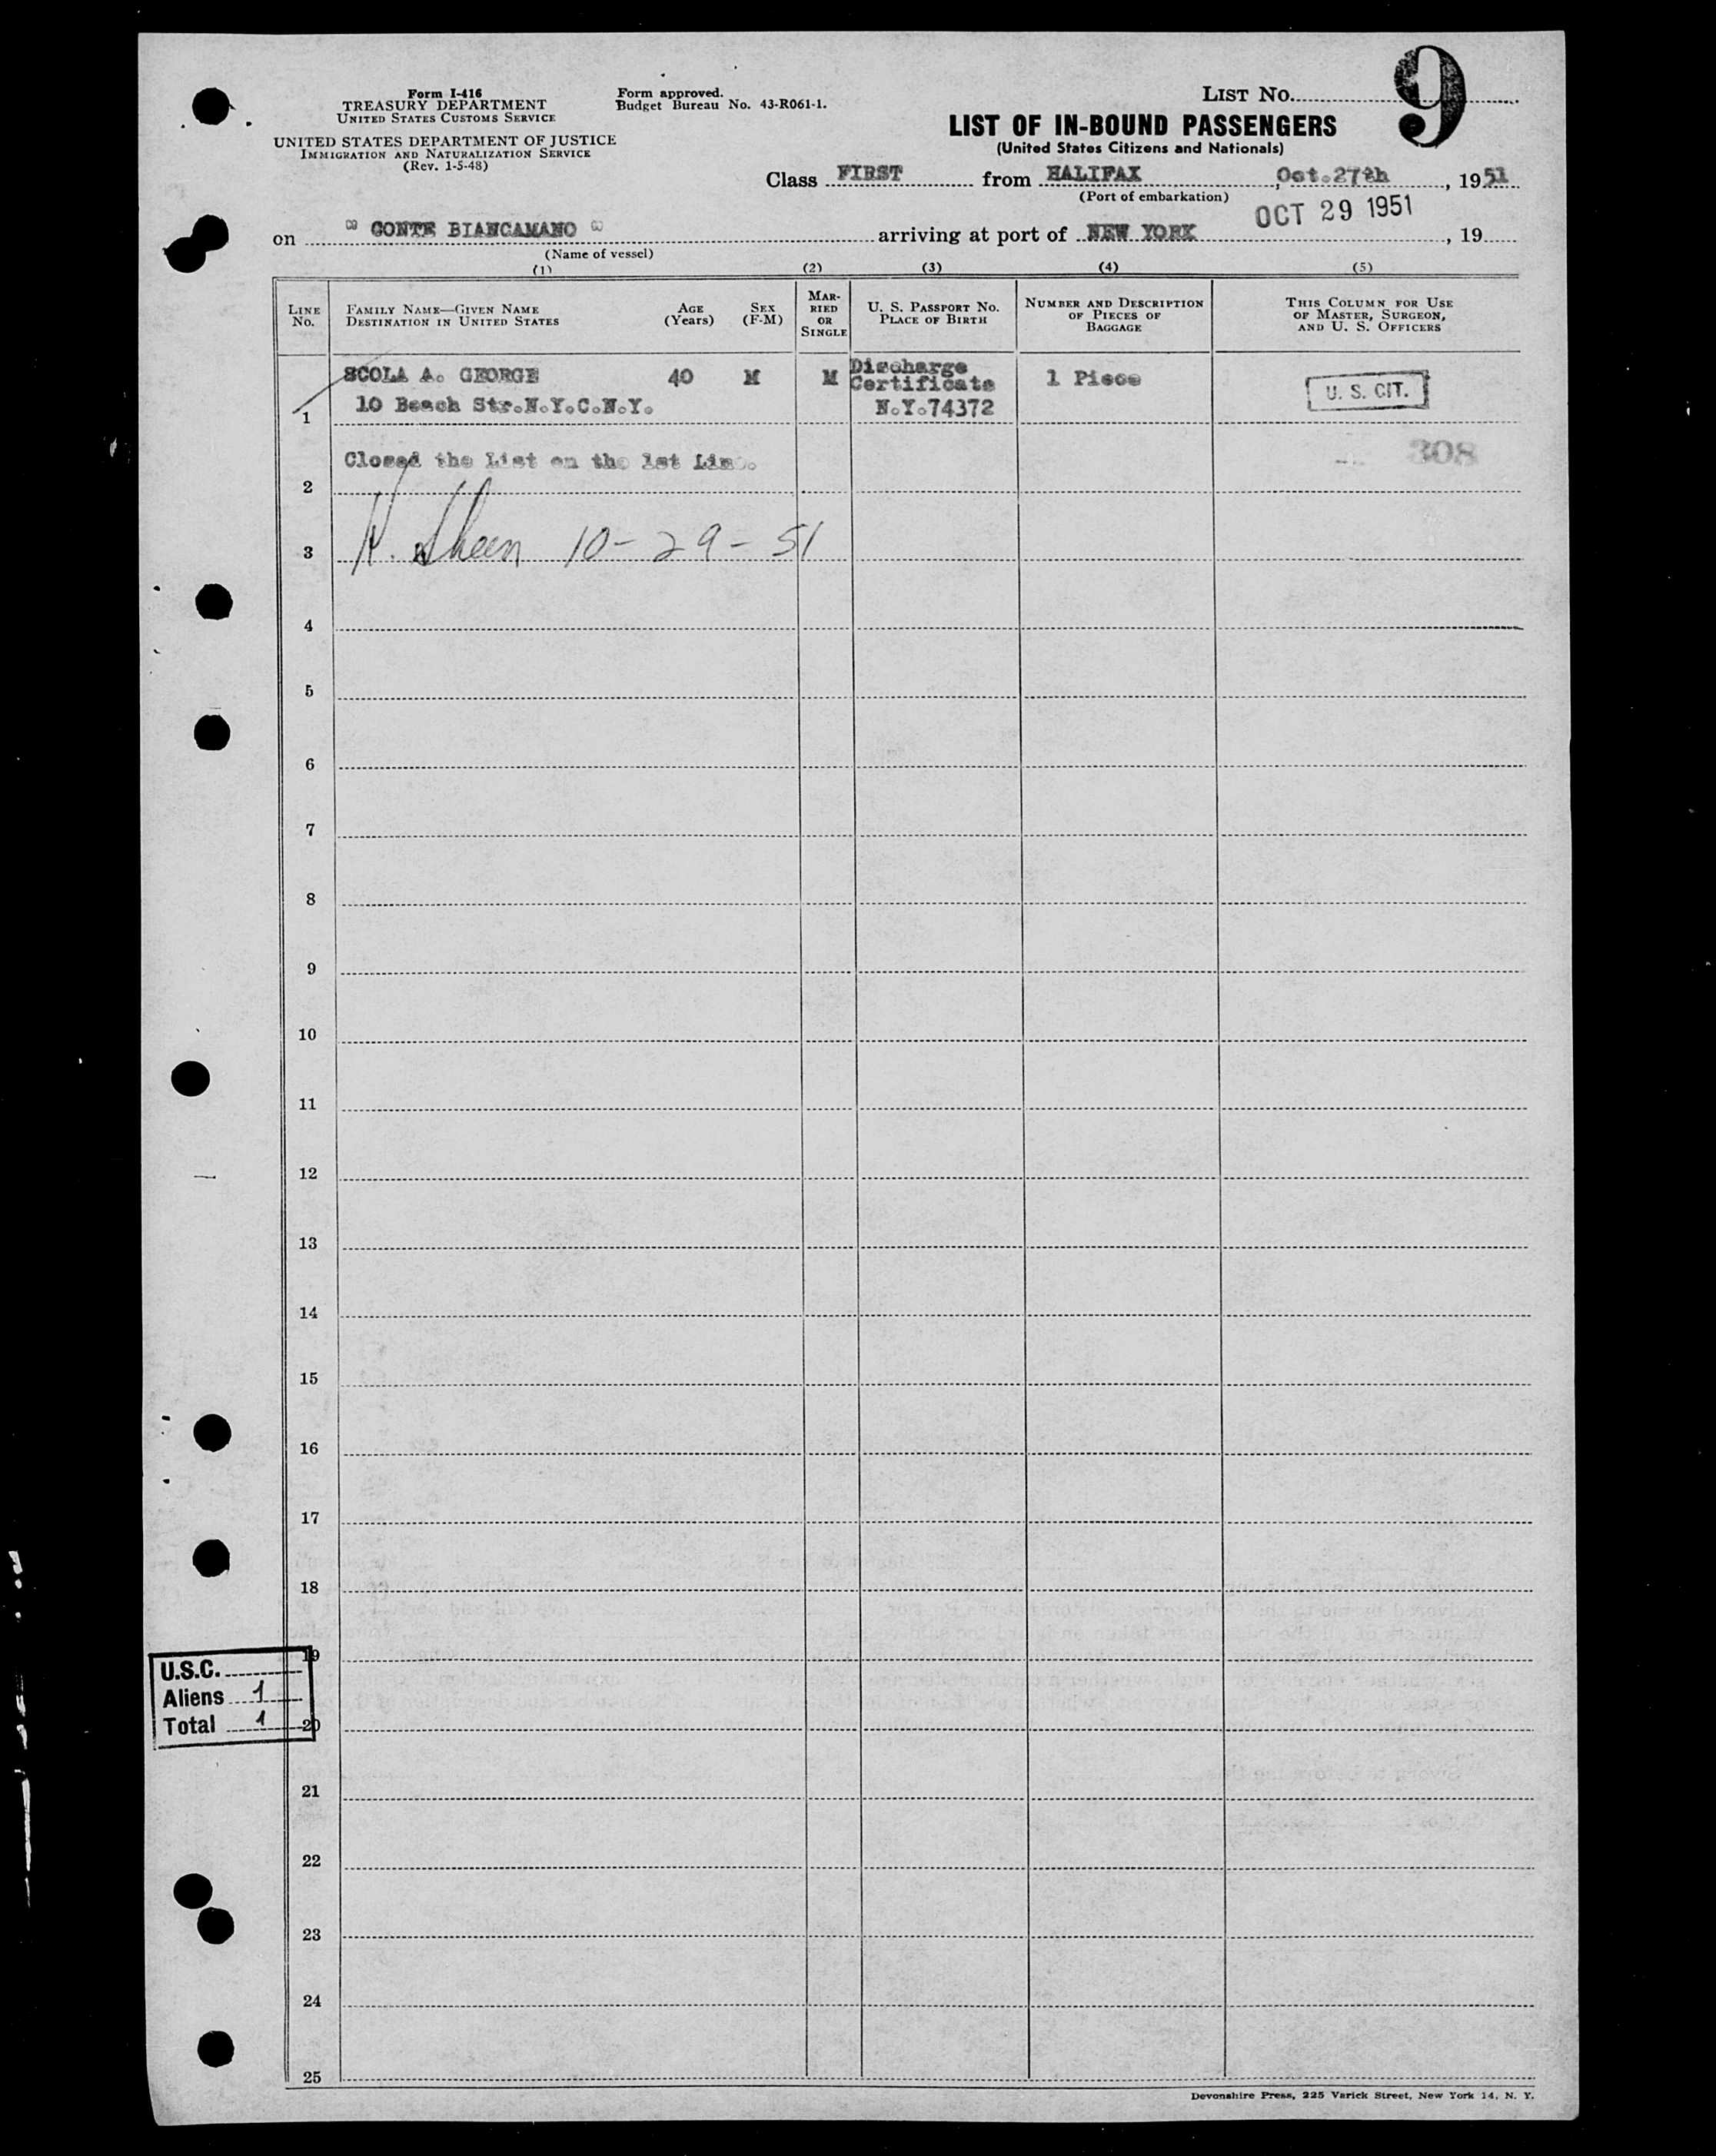 Form I-416
TREASURY DEPARTMENT
UNITED STATES CUSTOMS SERVICE
UNITED STATES DEPARTMENT OF JUSTICE
IMMIGRATION AND NATURALIZATION SERVICE
(Rev. 1-5-48)
Form approved.
Budget Bureau No. 43-R061-1.
LIST NO. 9
LIST OF IN-BOUND PASSENGERS
(United States Citizens and Nationals)
Class FIRST from HALIFAX, Oct. 27th, 1951
(Port of embarkation)
OCT 29 1951
on " CONTE BIANCAMANO " arriving at port of NEW YORK, 19
(Name of vessel)
(1) (2) (3) (4) (5)
LINE No.
FAMILY NAME—GIVEN NAME
DESTINATION IN UNITED STATES
AGE (Years)
SEX (F-M)
MARRIED OR SINGLE
U. S. PASSPORT NO.
PLACE OF BIRTH
NUMBER AND DESCRIPTION OF PIECES OF BAGGAGE
THIS COLUMN FOR USE OF MASTER, SURGEON, AND U. S. OFFICERS
SCOLA A. GEORGE 40 M M Discharge Certificate 1 Piece U. S. CIT.
1 10 Beach Str.N.Y.C.N.Y. N.Y.74372
Closed the List on the 1st Line. 308
2
3 H. Sheen 10-29-51
4
5
6
7
8
9
10
11
12
13
14
15
16
17
18
19
20
U.S.C.
Aliens 1
Total 1
21
22
23
24
25
Devonshire Press, 225 Varick Street, New York 14, N. Y.